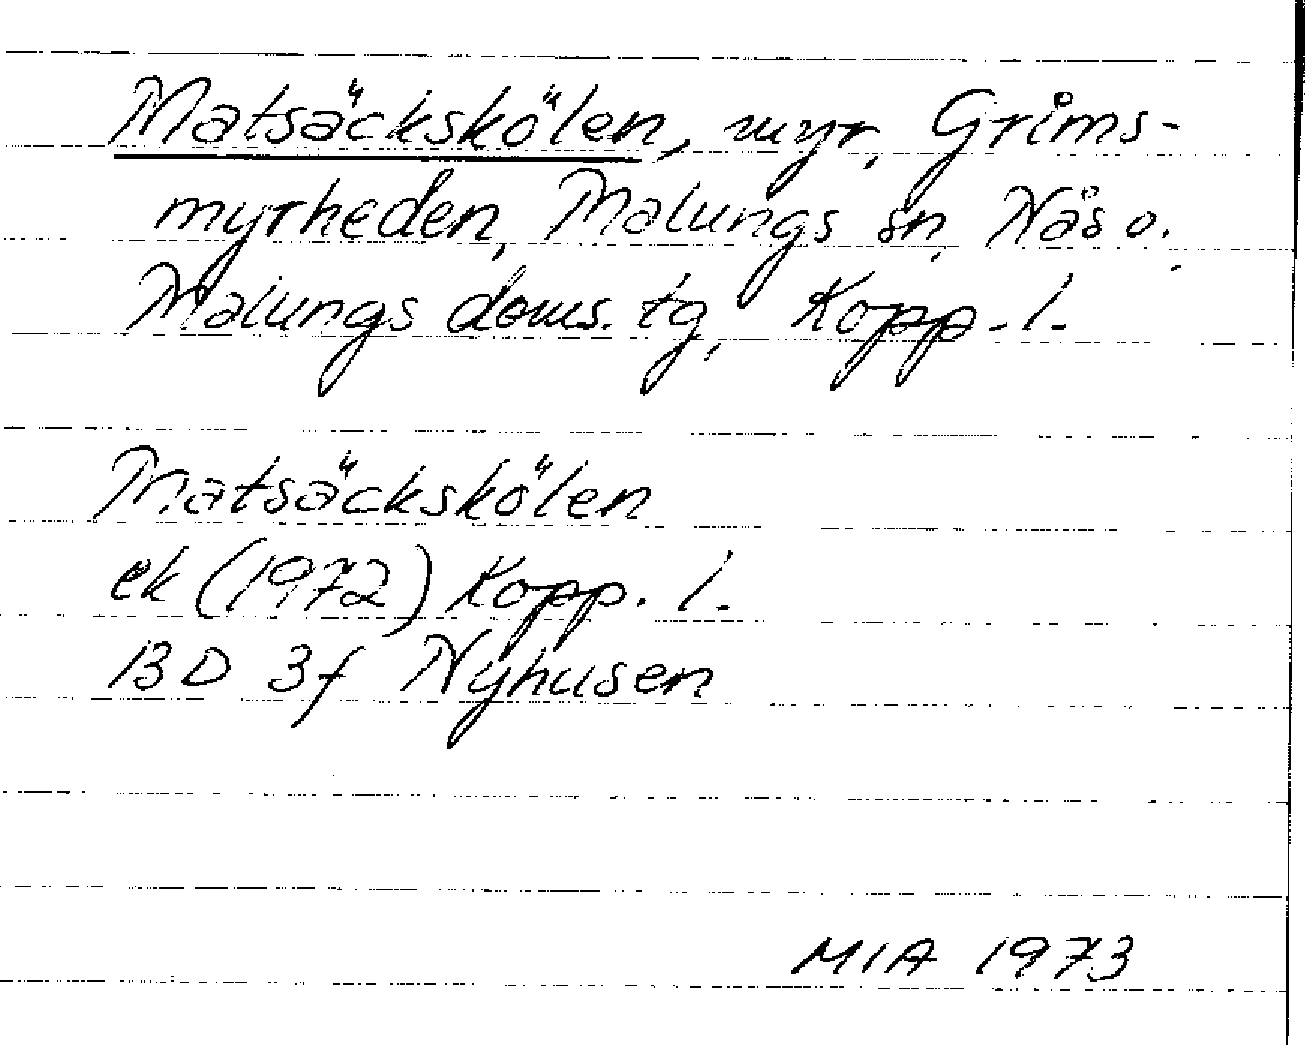 Matsäckskölen, myr, Grims-
myrheden, Malungs sn, Näs o.
Malungs doms. tg, Kopp. l.
Matsäckskölen
ek (1972) Kopp. l.
13 D 3f Nyhusen
MIA 1973